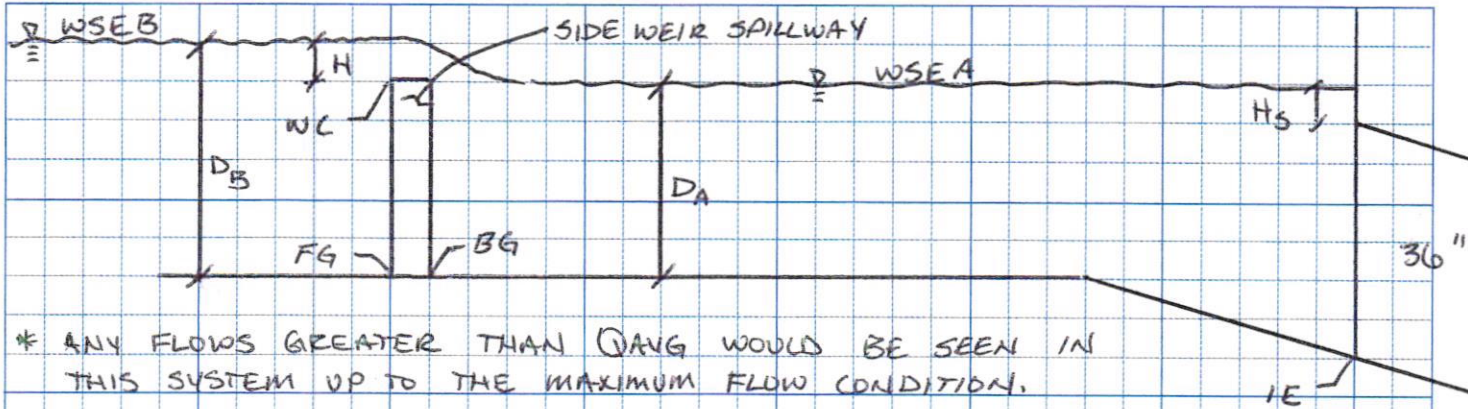 WSEB
SIDE WEIR SPILLWAY
H
WSEA
WC
HS
DB
DA
FG
BG
36"
* ANY FLOWS GREATER THAN QAVG WOULD BE SEEN IN
THIS SYSTEM UP TO THE MAXIMUM FLOW CONDITION.
IE